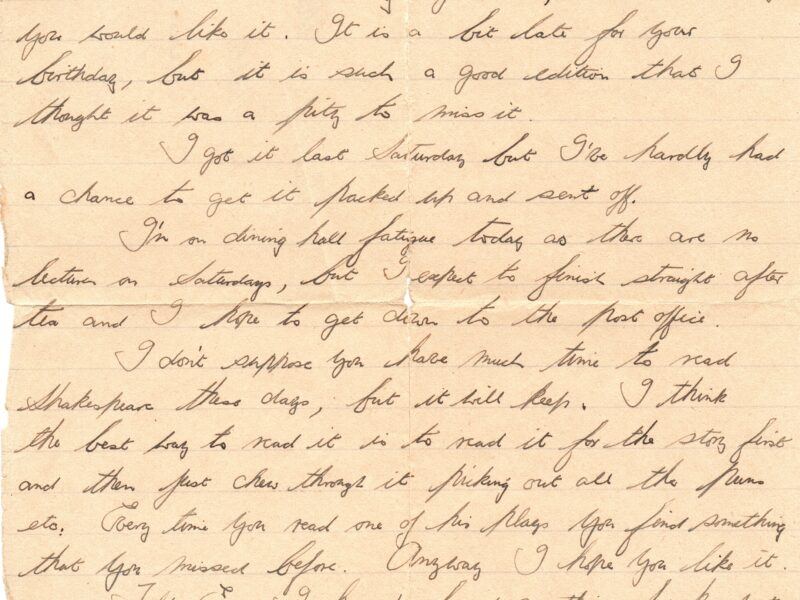 you would like it. It is a bit late for your
birthday, but it is such a good edition that I
thought it was a pity to miss it.
I got it last Saturday but I've hardly had
a chance to get it packed up and sent off.
I'm on dining hall fatigue today as there are no
lectures on Saturdays, but I expect to finish straight after
tea and I hope to get down to the post office.
I don't suppose you have much time to read
Shakespeare these days, but it will keep. I think
the best way to read it is to read it for the story first
and then just chew through it picking out all the puns
etc. Every time you read one of his plays you find something
that you missed before. Anyway I hope you like it.